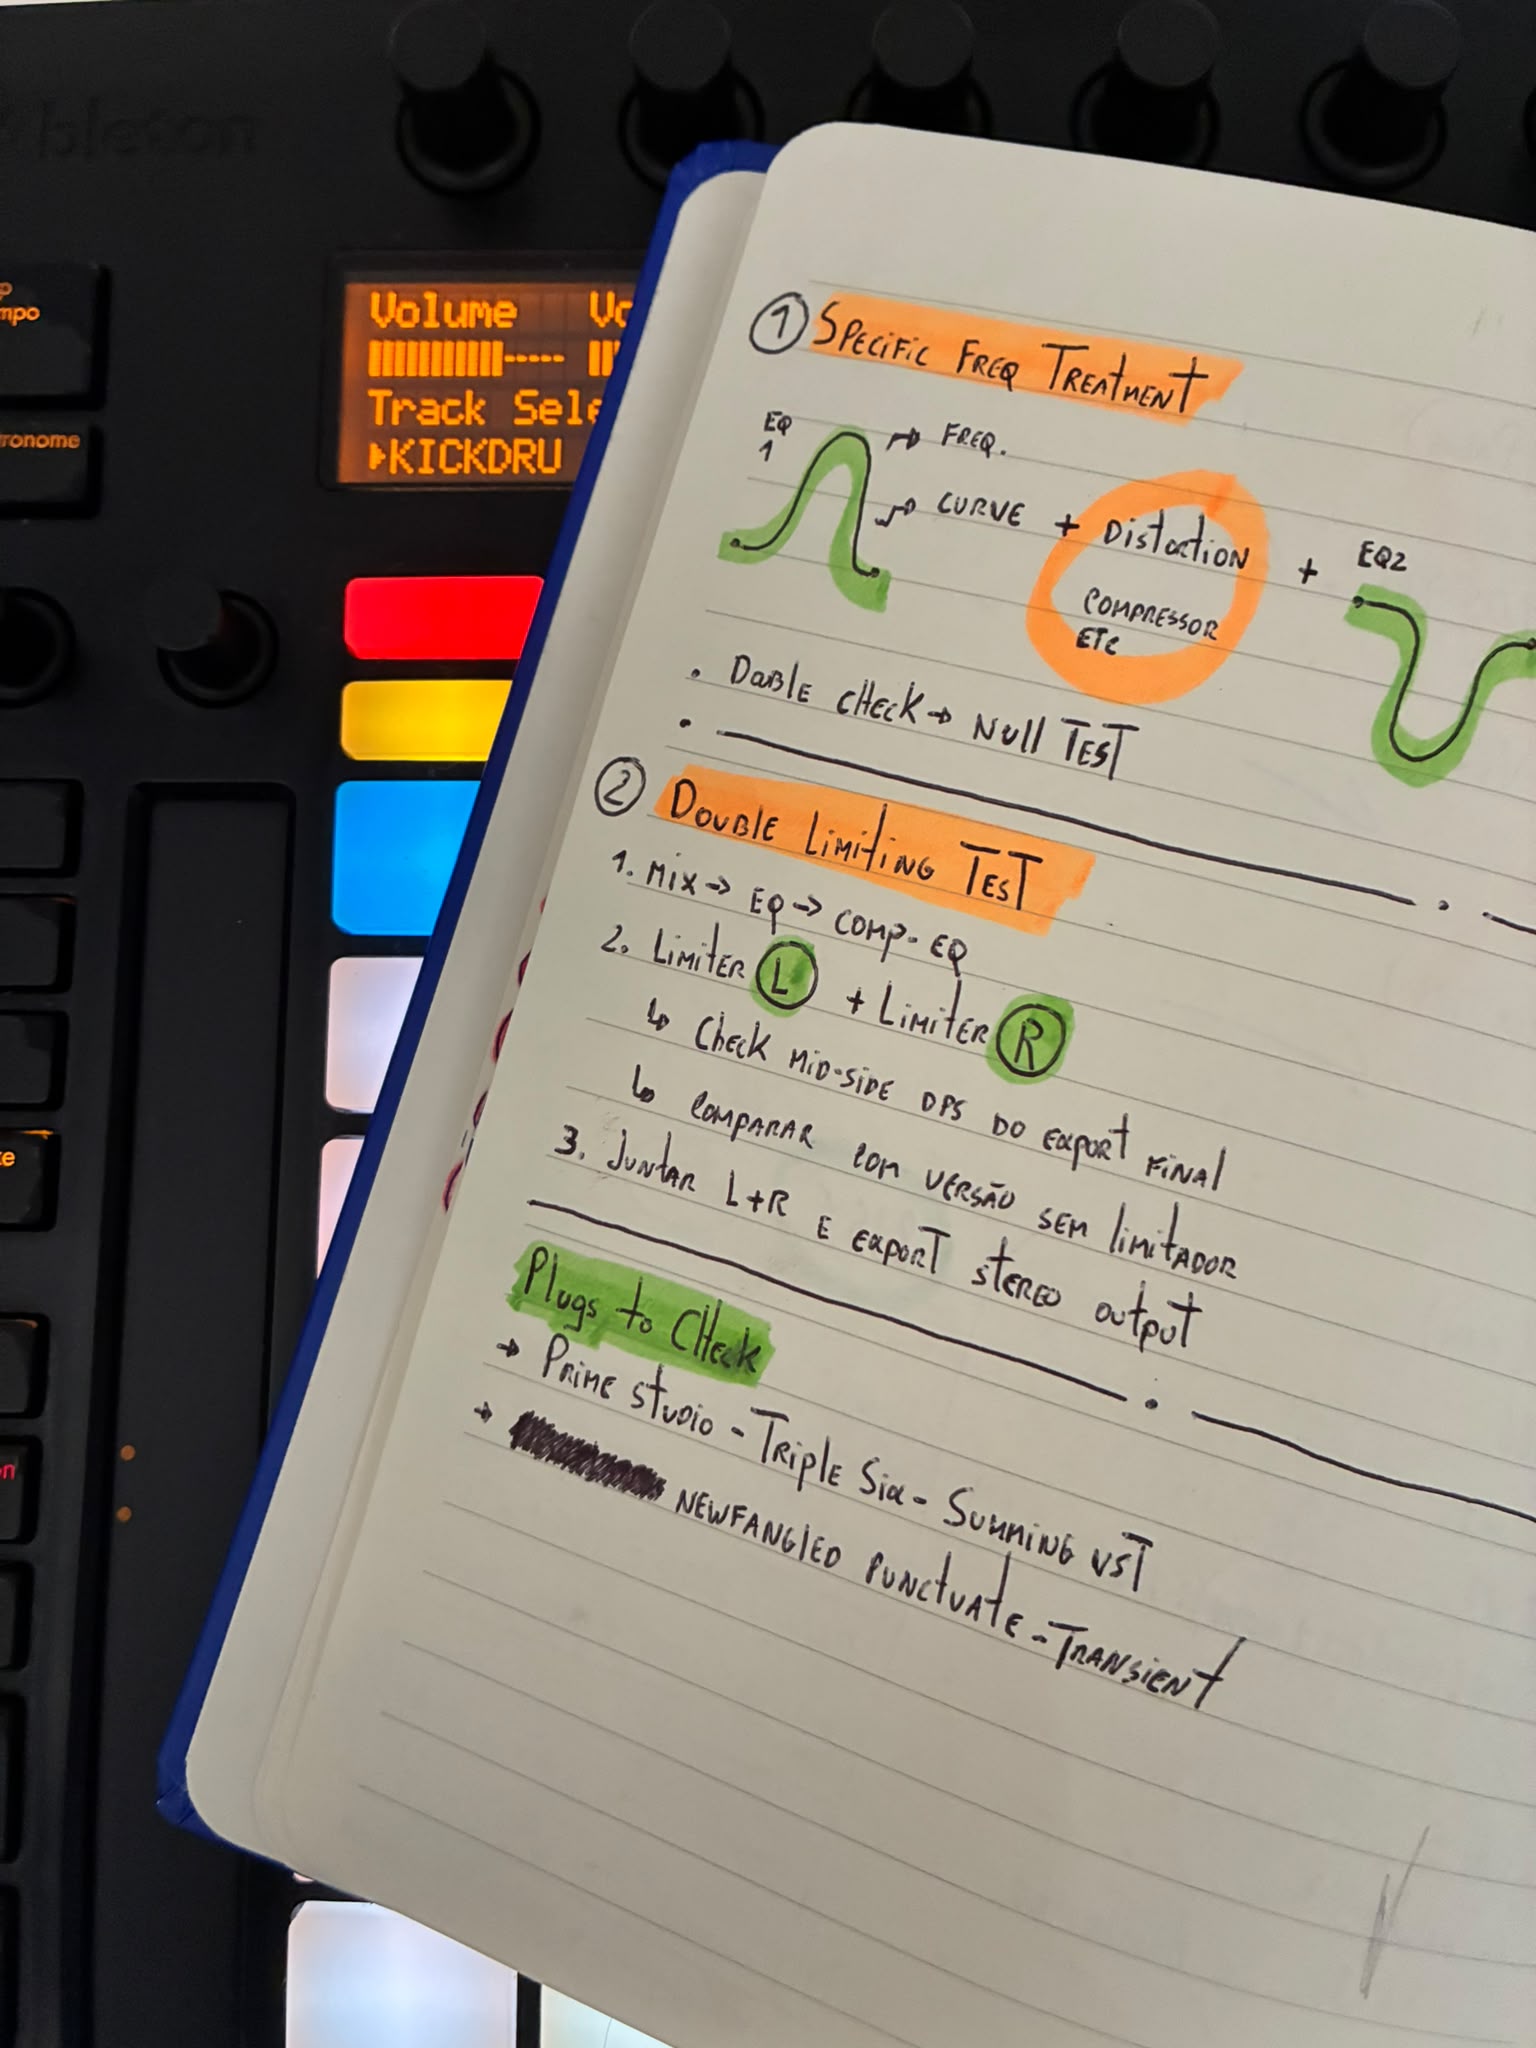 Ableton
mpo
ronome
Volume
Track Sele
KICKDRU
1 Specific Freq Treatment
EQ 1
→ Freq.
→ Curve + Distortion + EQ2
Compressor
Etc
. Double check → Null Test
2 Double Limiting Test
1. Mix → EQ → Comp-EQ
2. Limiter L + Limiter R
↳ Check mid-side DPS do export final
↳ Comparar com versão sem limitador
3. Juntar L+R e export stereo output
Plugs to Check
→ Prime Studio - Triple Six - Summing VST
→ Newfangled Punctuate - Transient